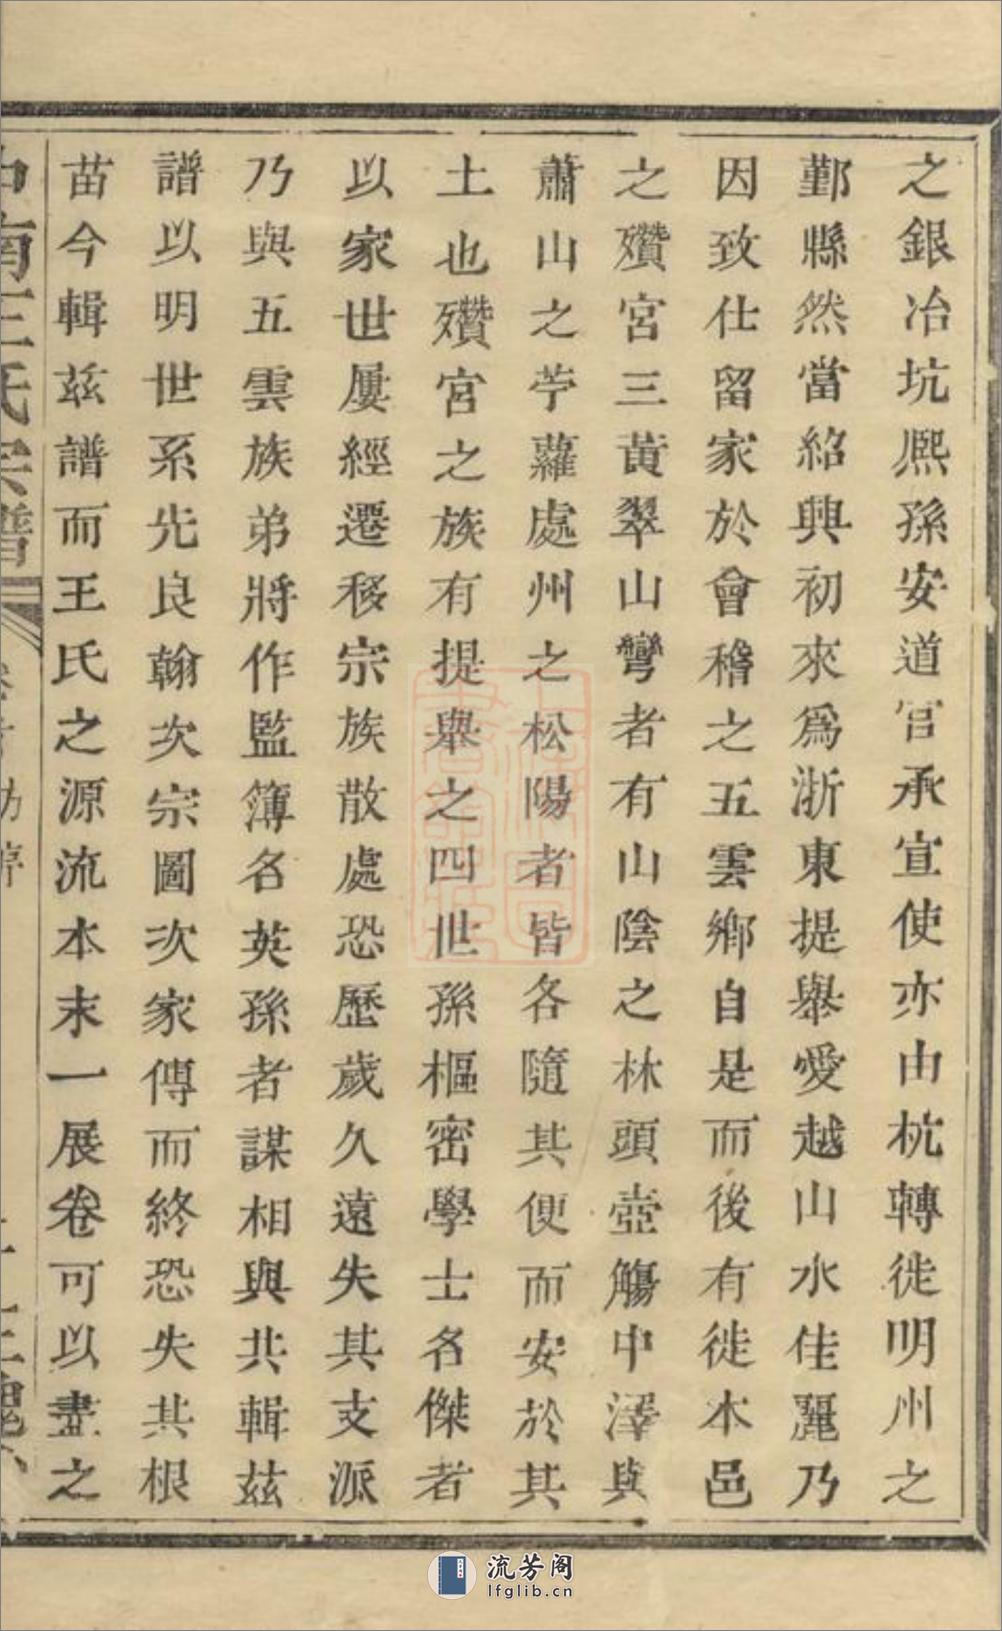 之銀冶坑熈孫安道官承宣使亦由杭轉徙明州之
鄞縣然當紹興初來爲浙東提舉愛越山水佳麗乃
因致仕留家於會稽之五雲鄉自是而後有徙本邑
之殯宮三黃翠山彎者有山陰之林頭壺觴中澤與
蕭山之苧蘿處州之松陽者皆各隨其便而安於其
土也殯宮之族有提舉之四世孫樞密學士名傑者
以家世屢經遷移宗族散處恐歷歲久遠失其支派
乃與五雲族弟將作監簿名英孫者謀相與共輯茲
譜以明世系先良翰次宗圖次家傳而終恐失其根
苗今輯茲譜而王氏之源流本末一展卷可以盡之
流芳阁
lfglib.cn